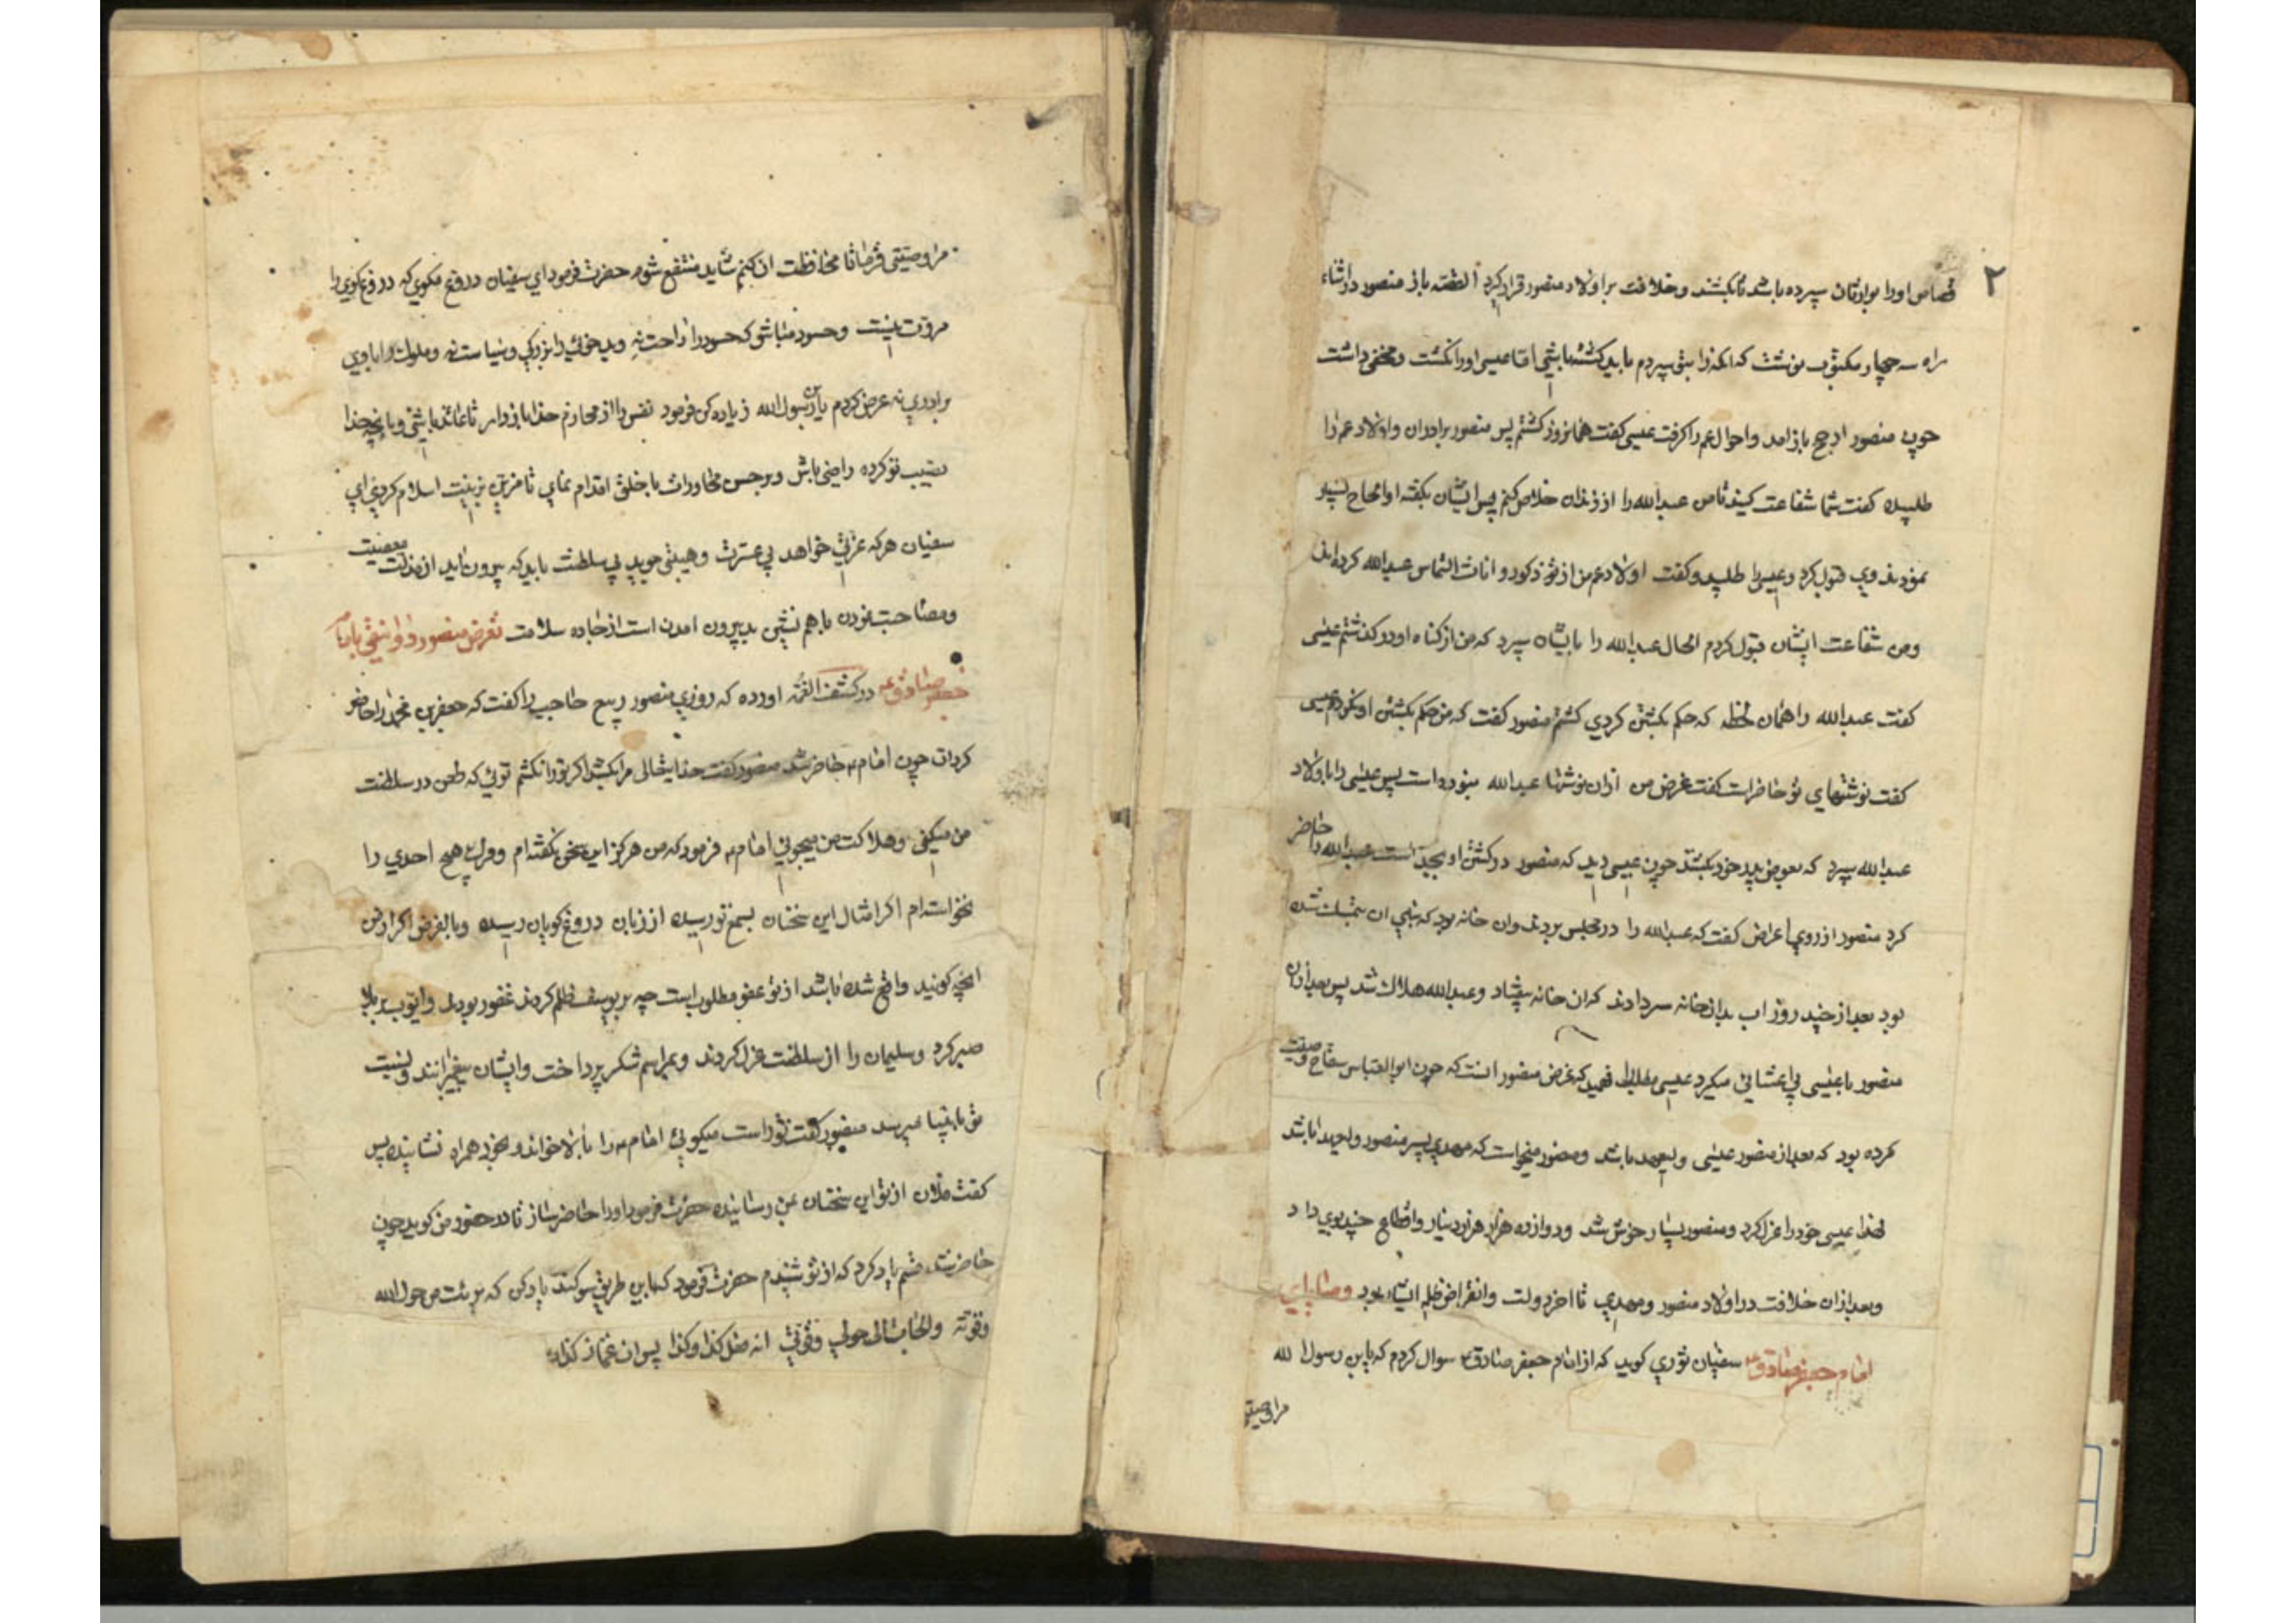 ۲
قصاص او را بوارثان سپرده باشد تا بکشند و خلافت بر اولاد منصور قرار گیرد القصه باز منصور در اثناء
راه سه چهار مکتوب نوشت که انکه را بتو سپردم باید کشته باشی اما عیسی او را نکشت و مخفی داشت
چون منصور از حج باز امد و احوال عم را کرفت عیسی کفت همانروز کشتم پس منصور برادران و اولاد عم را
طلبیده کفت شما شفاعت کنید تا من عبدالله را از زندان خلاص کنم پس ایشان بکفته او الحاح بسیار
نمودند وی قبول کرد و عیسی را طلبید و کفت اولاد عم من از ذکور و اناث التماس عبدالله کرده اند
و من شفاعت ایشان قبول کردم الحال عبدالله را بایشان سپرد که من از کناه او در کذشتم عیسی
کفت عبدالله را همان لحظه که حکم بکشتن کردی کشتم منصور کفت که من حکم بکشتن او نکردم عیسی
کفت نوشتهای تو حاضرست کفت غرض من ازان نوشتها عبدالله نبوده است پس عیسی را باولاد
عبدالله سپرد که بعوض پدر خود بکشند چون عیسی دید که منصور در کشتن او بجد است عبدالله را حاضر
کرد منصور از روی اعراض کفت که عبدالله را در مجلس بردند وان خانه بود که پی ان بنمک شده
بود بعد از چند روز اب بدانخانه سر دادند که ان خانه بیفتاد و عبدالله هلاک شد پس بعد ازان
منصور با عیسی بی اعتنائی میکرد عیسی فهمید که غرض منصور انست که چون ابوالعباس سفاح وصیت
کرده بود که بعد از منصور عیسی ولیعهد باشد و منصور میخواست که مهدی پسر منصور ولیعهد باشد
لهذا عیسی خود را عزل کرد و منصور بسیار خوش شد و دوازده هزار هزار دینار و اقطاع چند بوی داد
و بعد ازان خلافت در اولاد منصور و مهدی تا اخر دولت و انقراض بود وصایای
امام جعفر صادق ع سفیان ثوری کوید که از امام جعفر صادق ع سوال کردم که یابن رسول الله
مرا وصیتی
مرا وصیتی فرما تا محافظت ان کنم شاید منتفع شوم حضرت فرمود ای سفیان دروغ مکوی که دروغ کوی را
مروت نیست و حسود مباش که حسود را راحت نه و بدخوئی را بزرکی و سیاست نه و ملوک را با وی
برادری نه عرض کردم یابن رسول الله زیاده کن فرمود نفس را از محارم خدا باز دار تا عابد باشی و بانچه خدا
نصیب تو کرده راضی باش و بر حسن مجاورات با خلق اقدام نمای تا مزین بزینت اسلام کردی ای
سفیان هرکه عزتی خواهد بی عشرت و هیبتی جوید بی سلطنت باید که بیرون اید از مذلت معصیت
و مصاحبت نمودن با هم نشین بد بیرون امدن است از جاده سلامت تعرض منصور دوانیقی بامام
جعفر صادق ع در کشف الغمه اورده که روزی منصور ربیع حاجب را کفت که جعفر بن محمد را حاضر
کردان چون امام ع حاضر شد منصور کفت خدایتعالی مرا بکشد اکر تو را نکشم توئی که طعن در سلطنت
من میکنی و هلاکت من میجوئی امام ع فرمود که من هرکز این سخن نکفته ام و مرک هیچ احدی را
نخواسته ام اکر امثال این سخنان بسمع تو رسیده از زبان دروغ کویان رسیده و بالفرض اکر از من
انچه کویند واقع شده باشد از تو عفو مطلوبست چه بر یوسف ظلم کردند غفور بود و ایوب بر بلا
صبر کرد و سلیمان را از سلطنت عزل کردند و بمراسم شکر پرداخت و ایشان پیغمبرانند و نسبت
تو بانبیا میرسد منصور کفت تو راست میکوئی امام ع را ببالا خواند و بخود همراه نشانید پس
کفت فلان از تو این سخنان بمن رسانیده حضرت فرمود او را حاضر ساز تا در حضور من کوید چون
حاضر شد قسم یاد کرد که از تو شنیدم حضرت فرمود که باین طریق سوکند یاد کن که برئت من حول الله
وقوته والتجات الی حولی وقوتی انه فعل کذا وکذا پس ان غماز